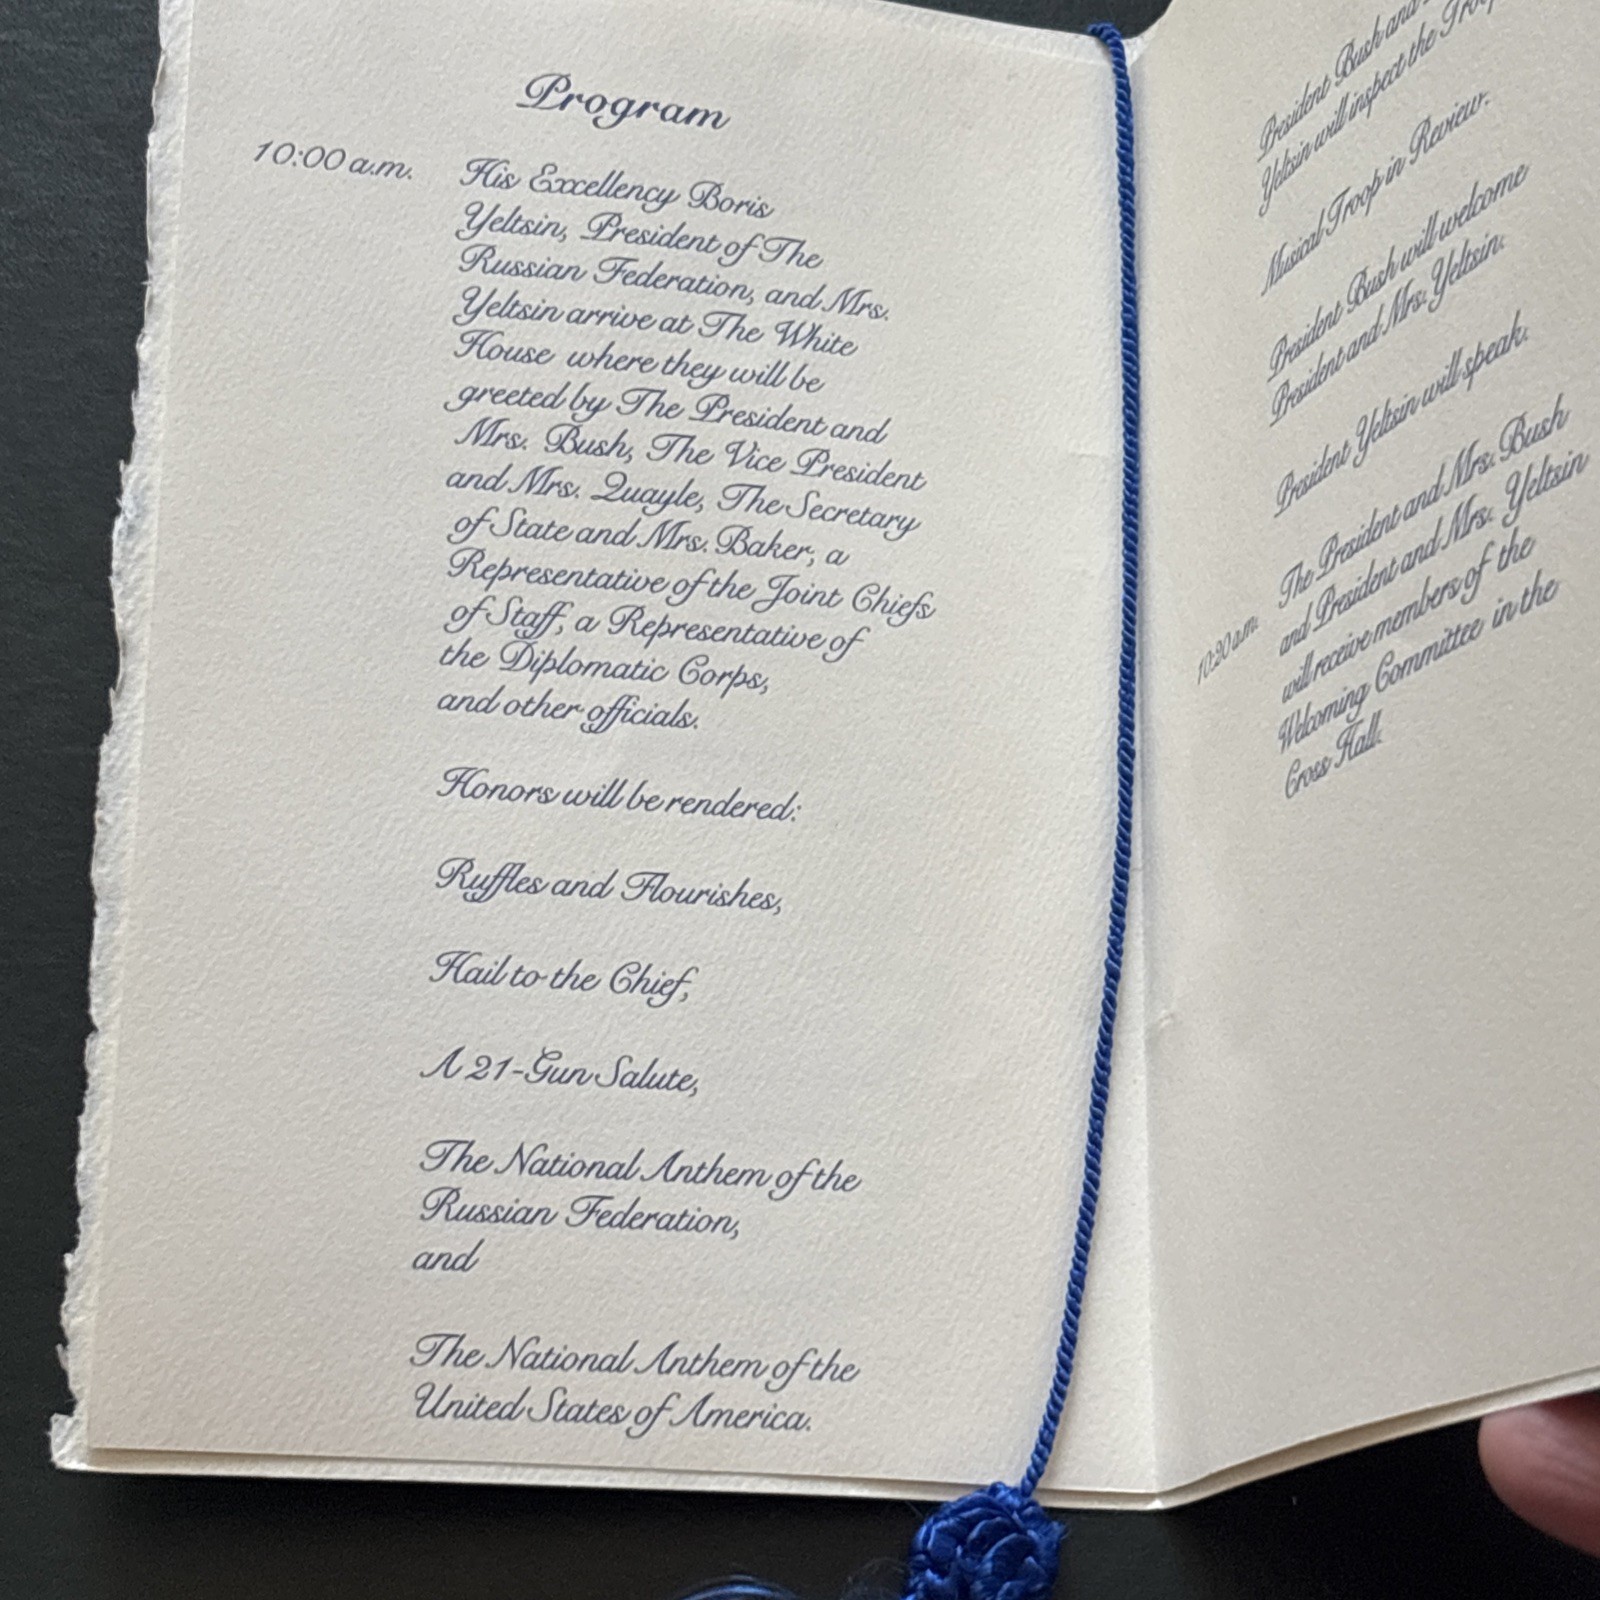 Program
10:00 a.m.
His Excellency Boris
Yeltsin, President of The
Russian Federation, and Mrs.
Yeltsin arrive at The White
House where they will be
greeted by The President and
Mrs. Bush, The Vice President
and Mrs. Quayle, The Secretary
of State and Mrs. Baker, a
Representative of the Joint Chiefs
of Staff, a Representative of
the Diplomatic Corps,
and other officials.
Honors will be rendered:
Ruffles and Flourishes,
Hail to the Chief,
A 21-Gun Salute,
The National Anthem of the
Russian Federation,
and
The National Anthem of the
United States of America.
President Bush and
Yeltsin will inspect the
Musical Troop in Review.
President Bush will welcome
President and Mrs. Yeltsin.
President Yeltsin will speak.
10:20 a.m.
The President and Mrs. Bush
and President and Mrs. Yeltsin
will receive members of the
Welcoming Committee in the
Cross Hall.